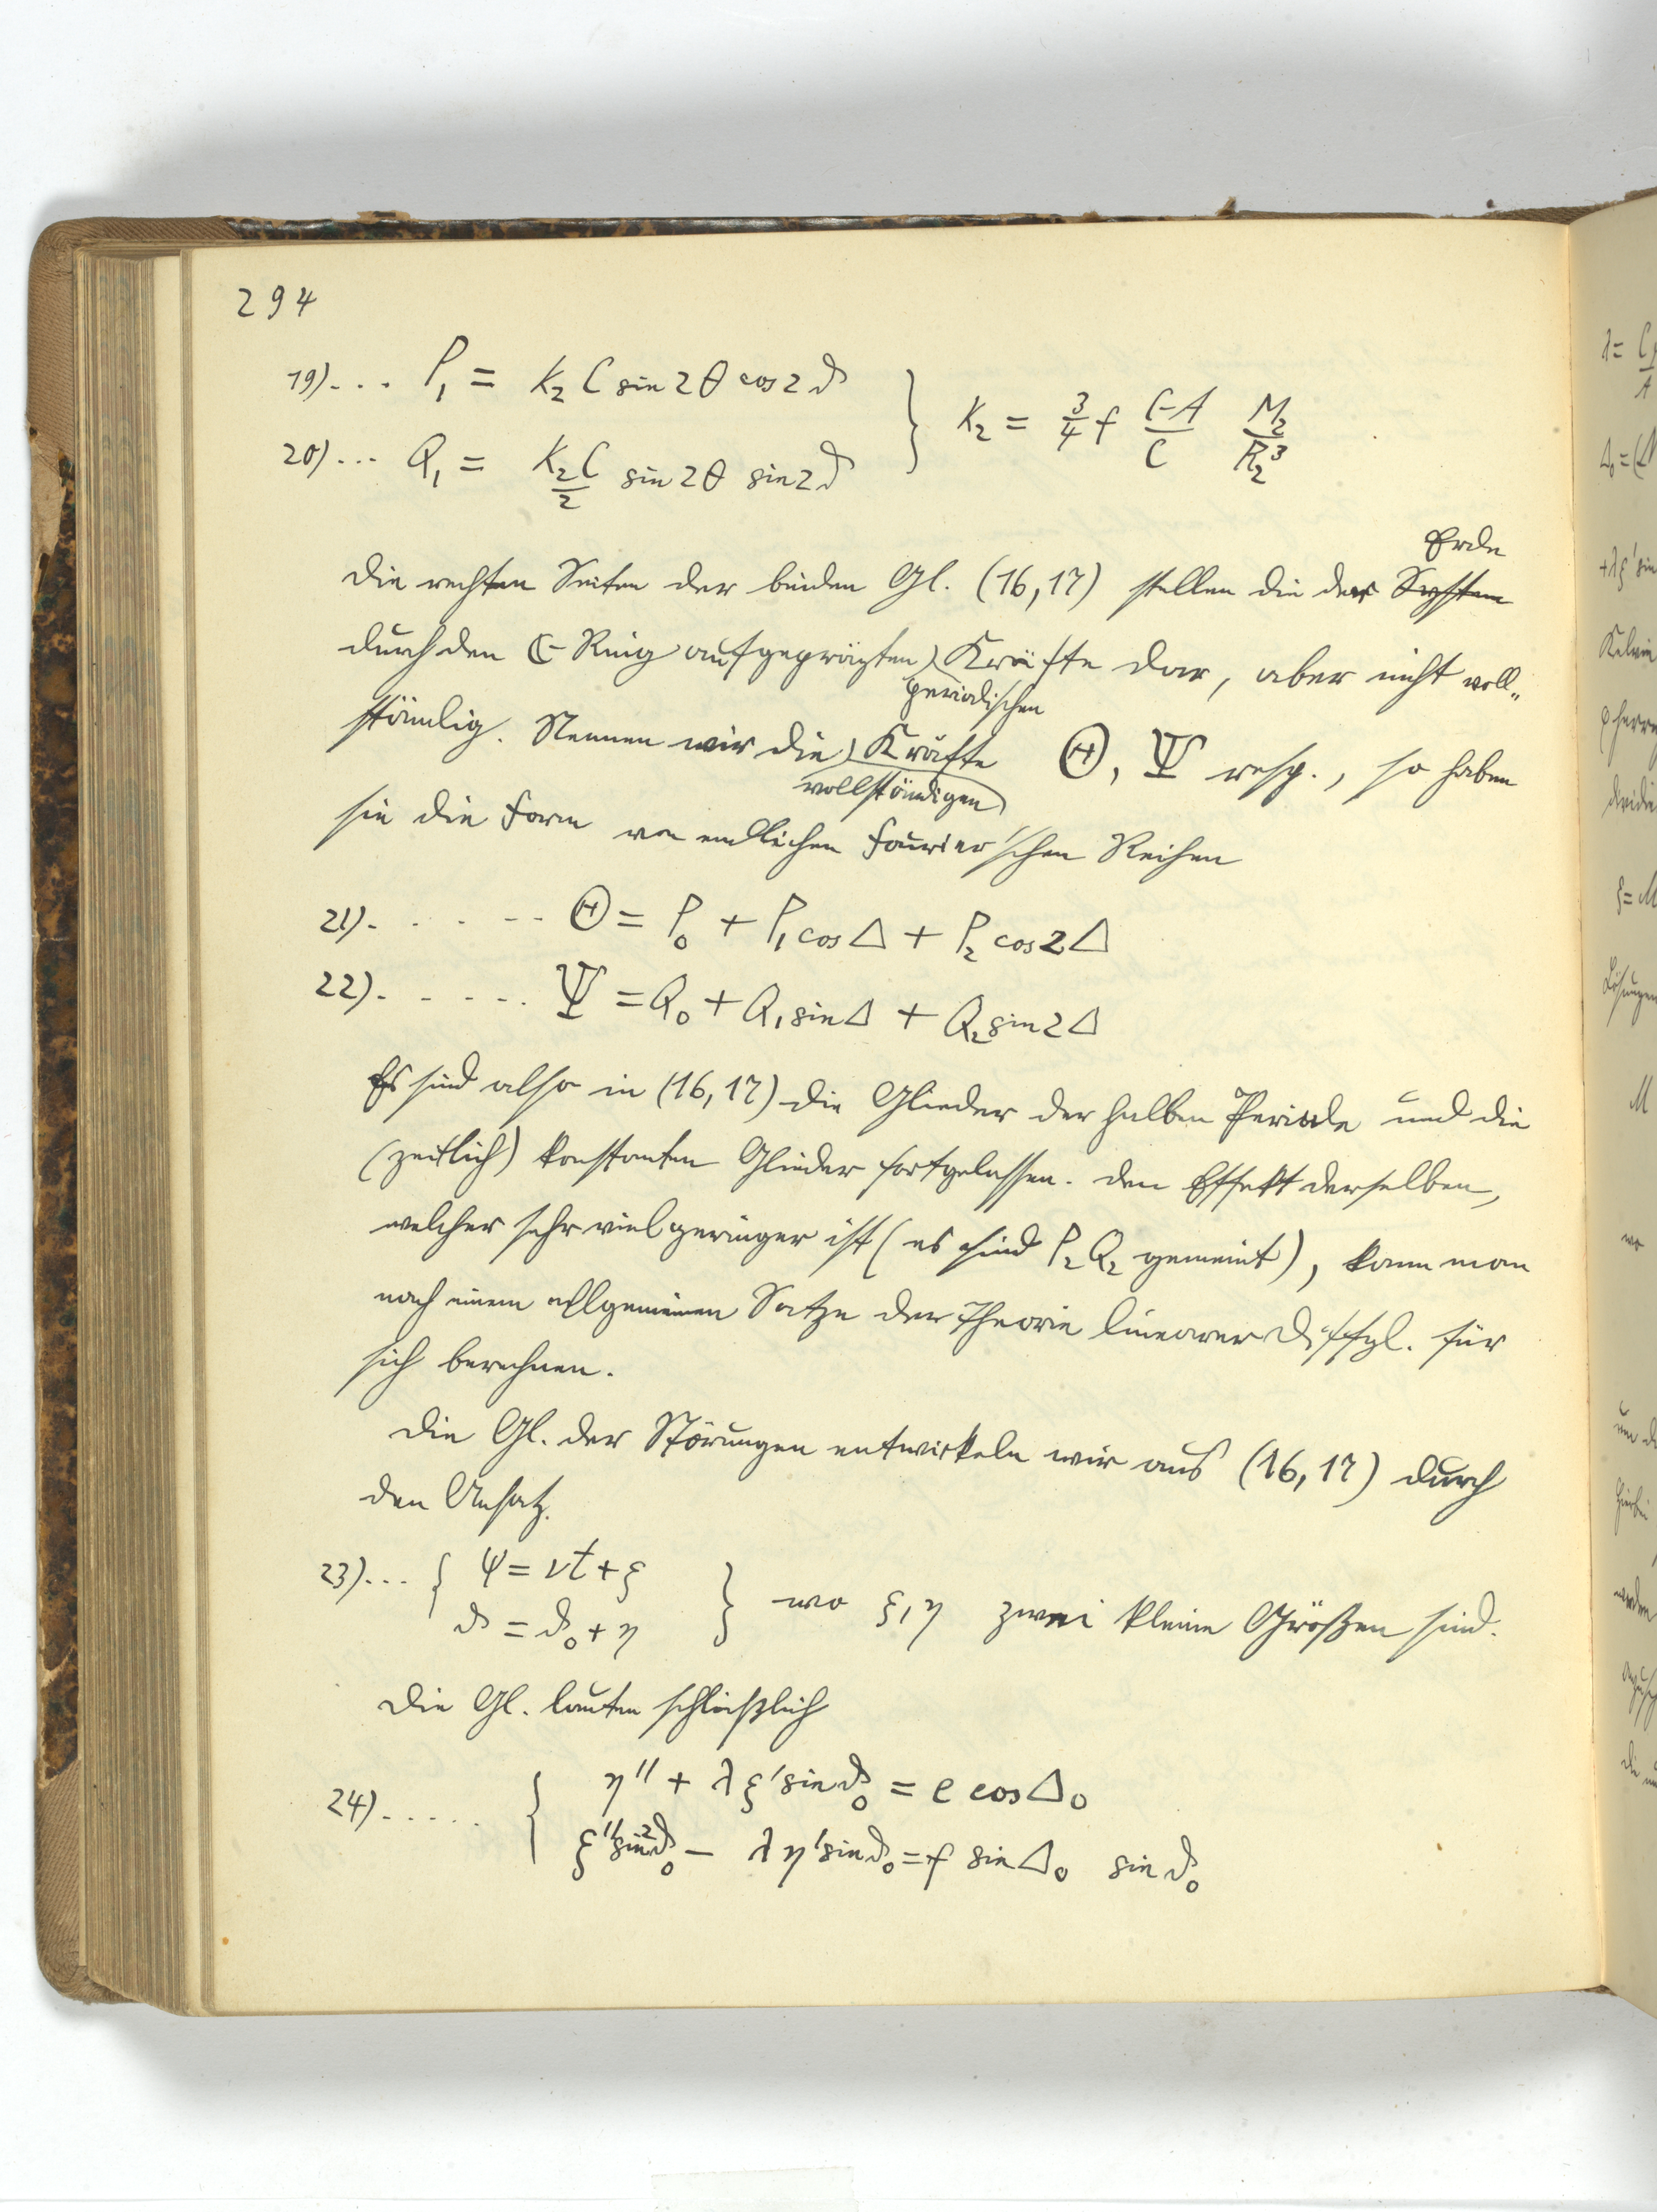 294
19)... P₁ = K₂ C sin 2θ cos 2ϑ
20)... Q₁ = K₂C/2 sin 2θ sin 2ϑ } K₂ = 3/4 f C-A/C M₂/R₂³
Erde
Die rechten Seiten der beiden Gl. (16,17) stellen die der System
durch den ☾-Ring aufgeprägten Kräfte dar, aber nicht voll-
periodischen
ständig. Nennen wir die Kräfte Θ, Ψ resp., so haben
vollständigen
sie die Form von endlichen Fourier'schen Reihen
21). . . . . . Θ = P₀ + P₁ cos Δ + P₂ cos 2Δ
22). . . . . Ψ = Q₀ + Q₁ sin Δ + Q₂ sin 2Δ
Es sind also in (16,17) die Glieder der halben Periode und die
(zeitlich) konstanten Glieder fortgelassen. Den Effekt derselben,
welcher sehr viel geringer ist (es sind P₂ Q₂ gemeint), kann man
nach einem allgemeinen Satze der Theorie linearer Diffgl. für
sich berechnen.
Die Gl. der Störungen entwickeln wir aus (16,17) durch
den Ansatz.
23)... { ψ = νt + ξ
ϑ = ϑ₀ + η } wo ξ, η zwei kleine Größen sind.
Die Gl. lauten schließlich
24)..... { η'' + λ ξ' sin ϑ₀ = e cos Δ₀
ξ'' sin² ϑ₀ − λ η' sin ϑ₀ = f sin Δ₀ sin ϑ₀